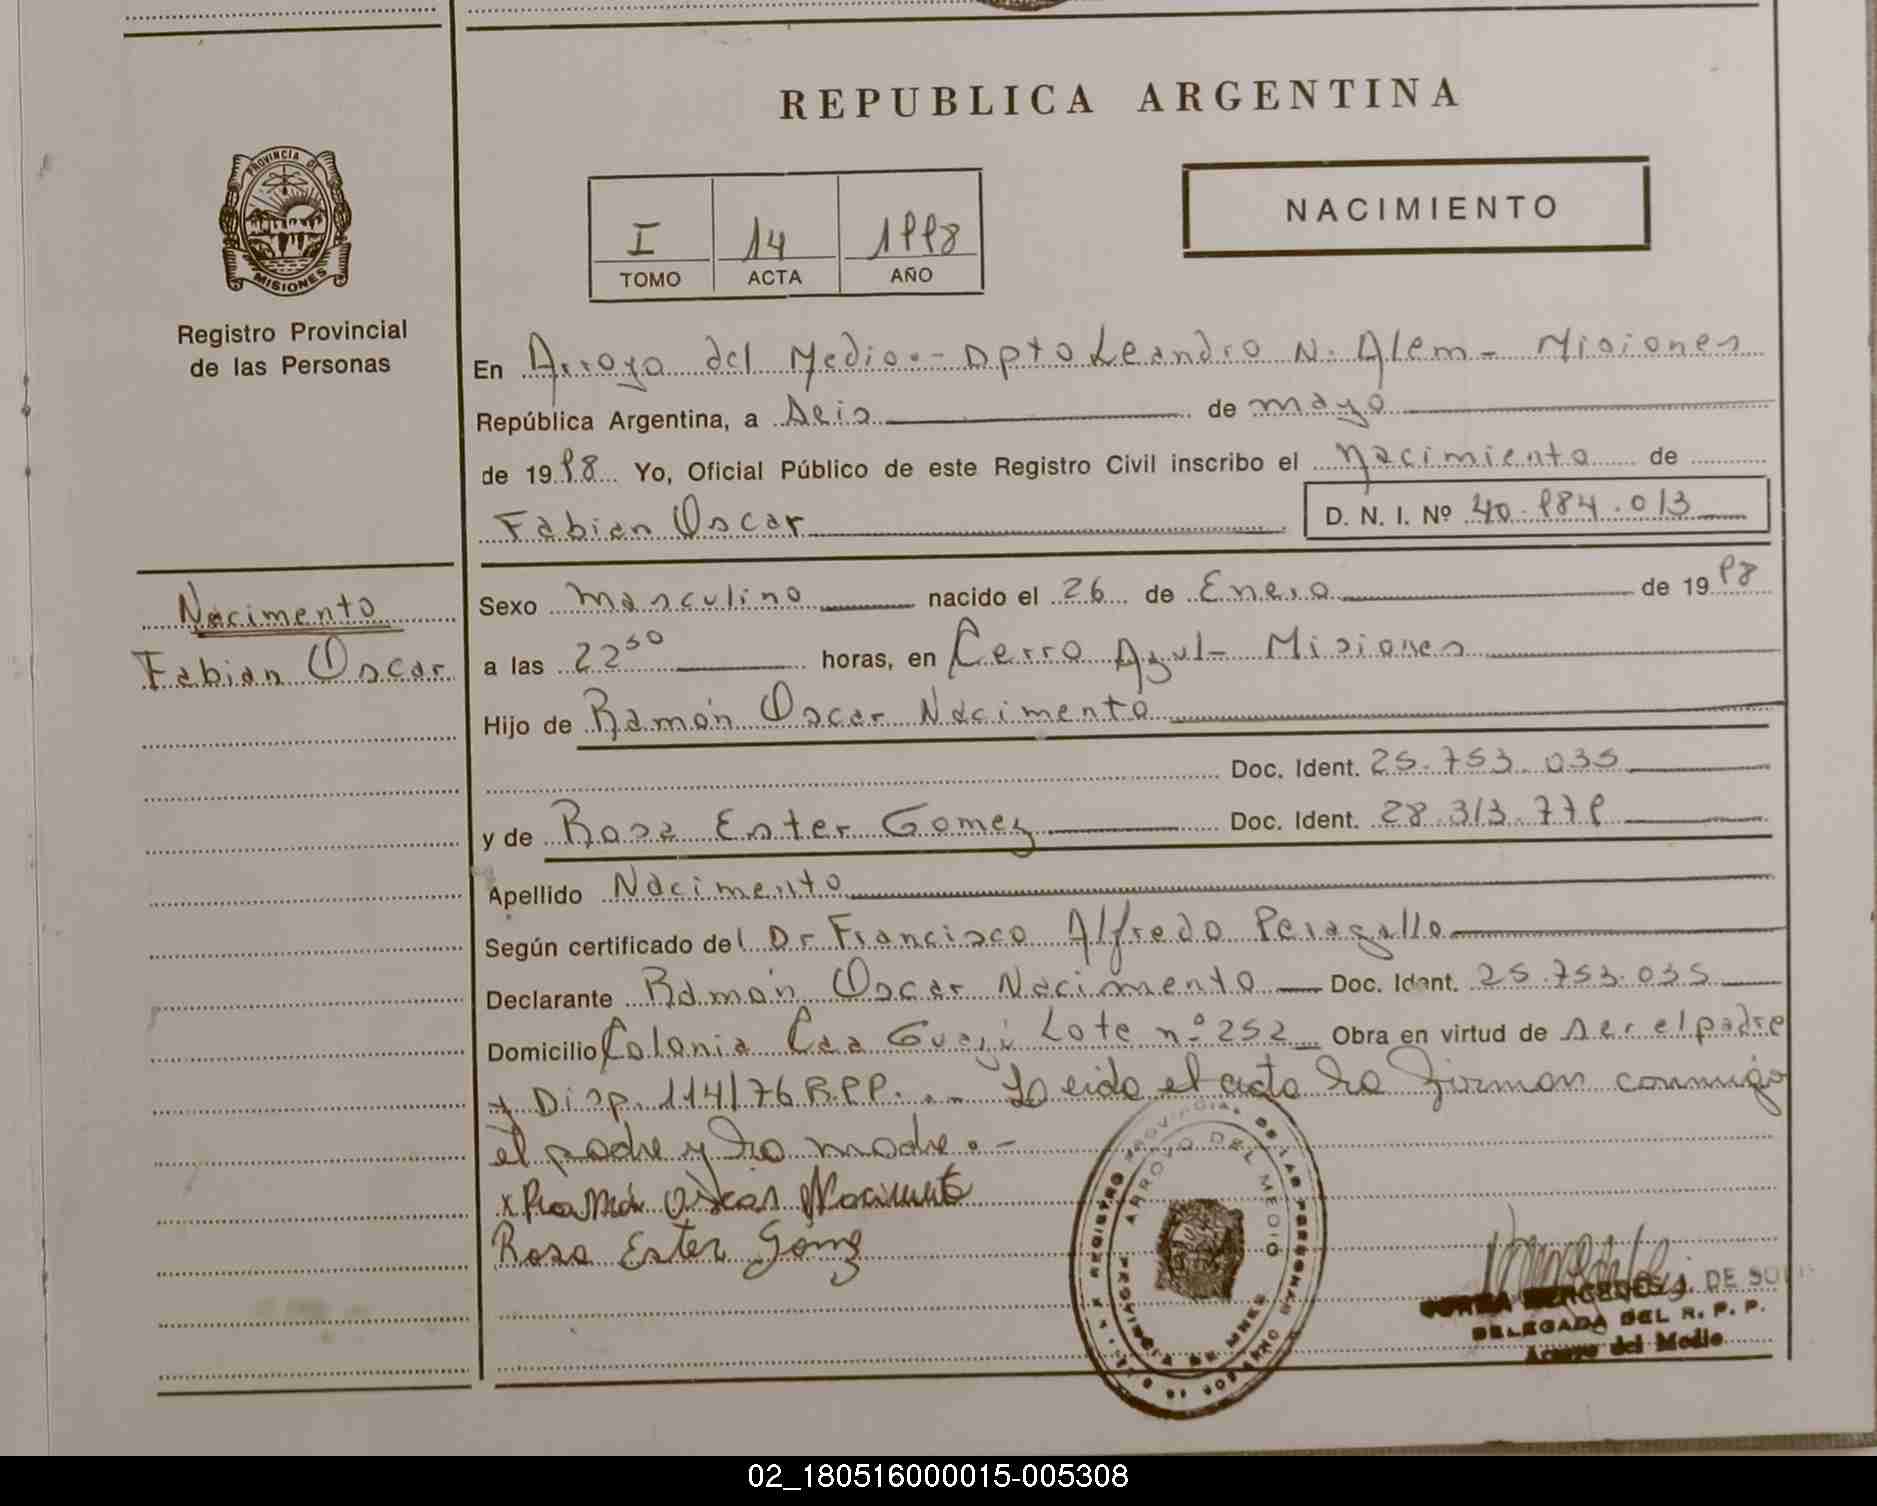 REPUBLICA ARGENTINA
PROVINCIA DE
MISIONES
Registro Provincial
de las Personas
I 14 1998
TOMO ACTA AÑO
NACIMIENTO
En Arroyo del Medio.- Dpto Leandro N. Alem - Misiones
República Argentina, a Seis de mayo
de 1998 Yo, Oficial Público de este Registro Civil inscribo el nacimiento de
Fabian Oscar D. N. I. Nº 40.984.013
Nacimento
Fabian Oscar
Sexo Masculino nacido el 26 de Enero de 1998
a las 22 50 horas, en Cerro Azul - Misiones
Hijo de Ramón Oscar Nacimento
Doc. Ident. 25.753.035
y de Rosa Ester Gomez Doc. Ident. 28.313.779
Apellido Nacimento
Según certificado del Dr Francisco Alfredo Peragallo
Declarante Ramón Oscar Nacimento Doc. Ident. 25.753.035
Domicilio Colonia Caa Guazú Lote nº 252 Obra en virtud de ser el padre
y Disp. 114/76 R.P.P. .- Leida el acta la firman conmigo
el padre y la madre.-
x Ramón Oscar Nacimento
Rosa Ester Gomez
REGISTRO PROVINCIAL DE LAS PERSONAS
ARROYO DEL MEDIO
MERCEDES J. DE
DELEGADA DEL R. P. P.
Arroyo del Medio
02_180516000015-005308